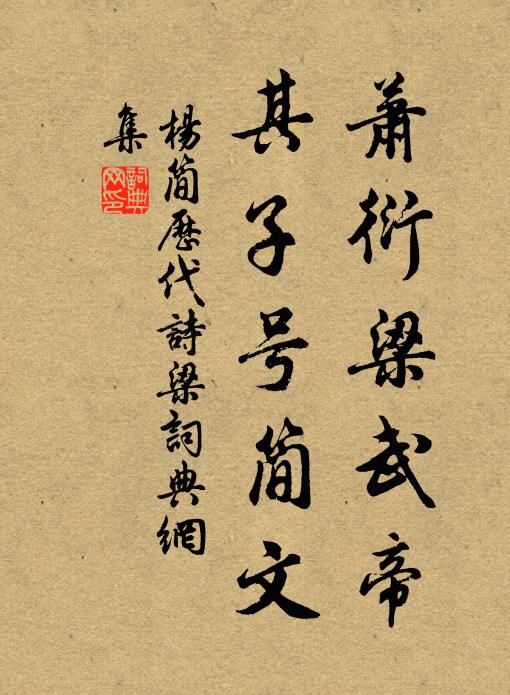 蕭衍梁武帝
其子号简文
楊简歷代詩梁詞典網
集
詞典网印